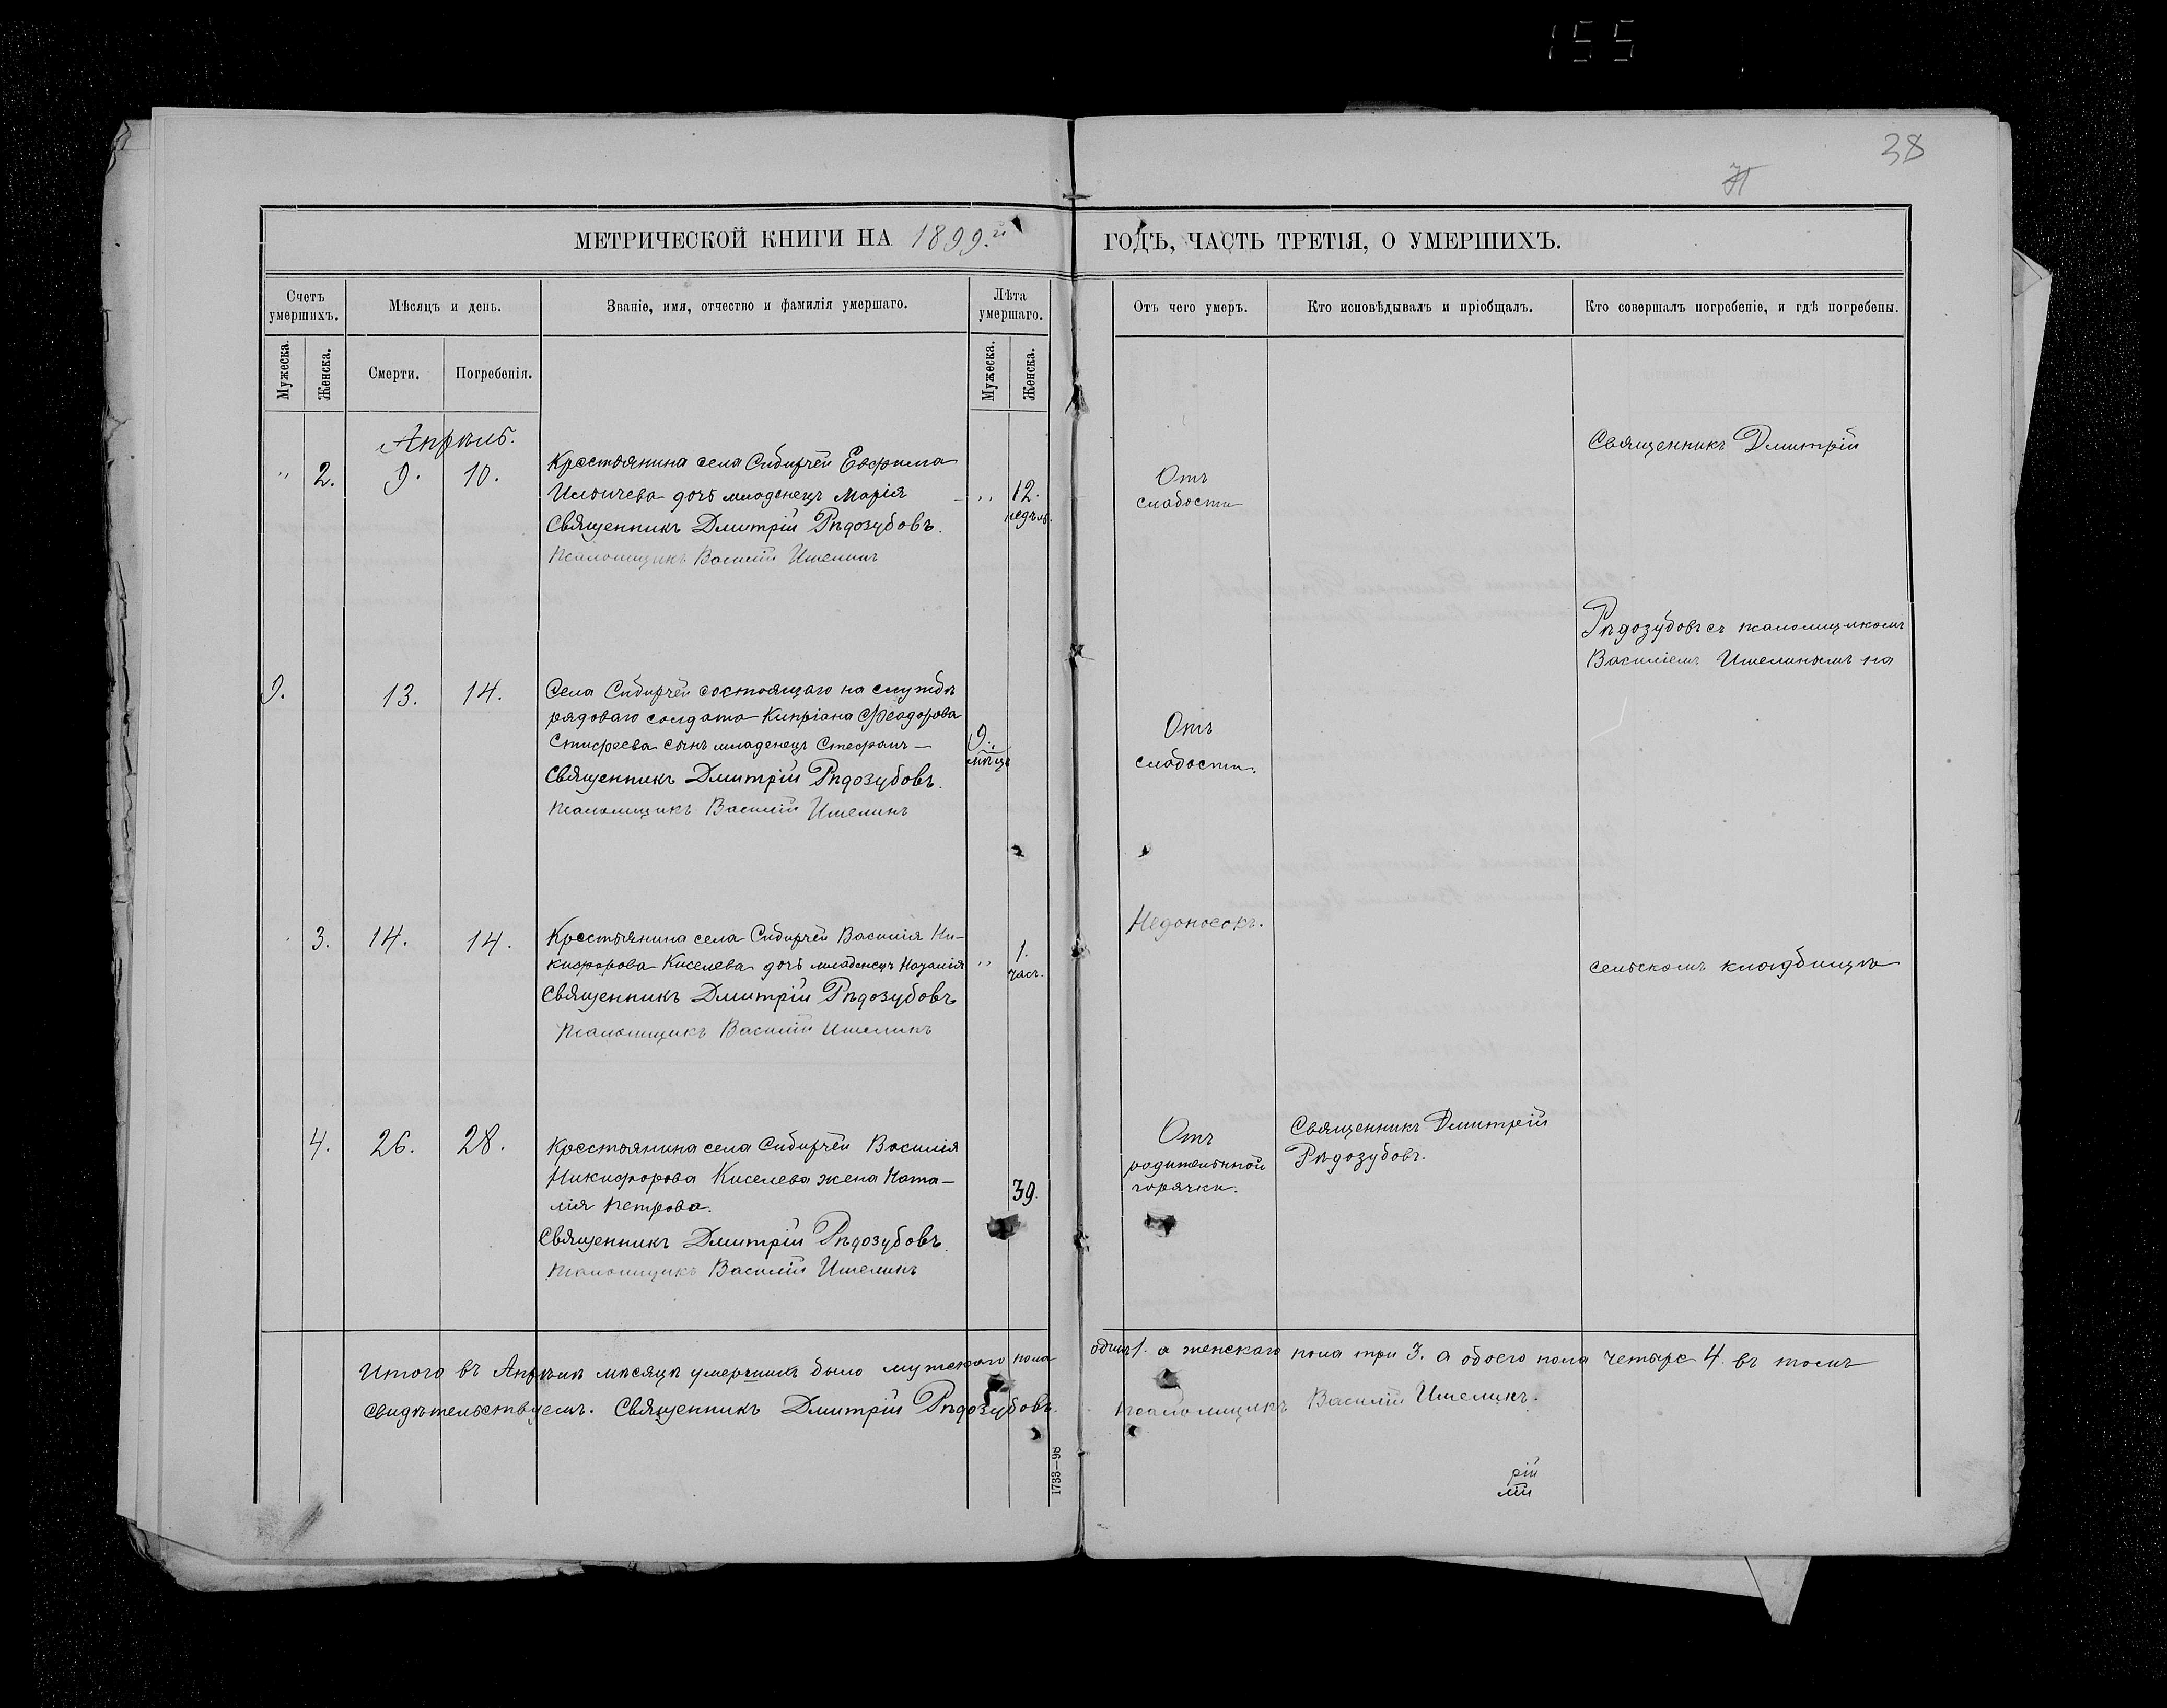 155
38
МЕТРИЧЕСКОЙ КНИГИ НА 1899.й ГОДЪ, ЧАСТЬ ТРЕТІЯ, О УМЕРШИХЪ.
Счетъ умершихъ.
Мужеска.
Женска.
Мѣсяцъ и день.
Смерти.
Погребенія.
Званіе, имя, отчество и фамилія умершаго.
Лѣта умершаго.
Мужеска.
Женска.
Отъ чего умеръ.
Кто исповѣдывалъ и пріобщалъ.
Кто совершалъ погребеніе, и гдѣ погребены.
Апрѣль.
„ 2. 9. 10.
Крестьянина села Сибирчей Евфима
Ильичева дочь младенецъ Марія
Священникъ Дмитрій Рѣдозубовъ.
Псаломщикъ Василій Ишелинъ
„ 12. недѣль.
Отъ
слабости
Священникъ Дмитрій
Рѣдозубовъ съ псаломщикомъ
Василіемъ Ишелинымъ на
сельскомъ кладбищѣ
9. 13. 14.
Села Сибирчей состоящаго на службѣ
рядоваго солдата Кипріана Ѳеодорова
сынъ младенецъ Стефанъ —
Священникъ Дмитрій Рѣдозубовъ.
Псаломщикъ Василій Ишелинъ
9. мѣсяц
Отъ
слабости.
3. 14. 14.
Крестьянина села Сибирчей Василія Ни-
кифорова Киселева дочь младенецъ Наталія
Священникъ Дмитрій Рѣдозубовъ
Псаломщикъ Василій Ишелинъ
„ 1. часъ.
Недоносокъ.
4. 26. 28.
Крестьянина села Сибирчей Василія
Никифорова Киселева жена Ната-
лія Петрова.
Священникъ Дмитрій Рѣдозубовъ.
Псаломщикъ Василій Ишелинъ
39.
Отъ
родительной
горячки.
Священникъ Дмитрій
Рѣдозубовъ.
Итого въ Апрѣлѣ мѣсяцѣ умершихъ было мужескаго пола одинъ 1. а женскаго пола три 3. а обоего пола четыре 4. въ томъ
свидѣтельствуемъ. Священникъ Дмитрій Рѣдозубовъ. Псаломщикъ Василій Ишелинъ.
1733—98
рій
лій